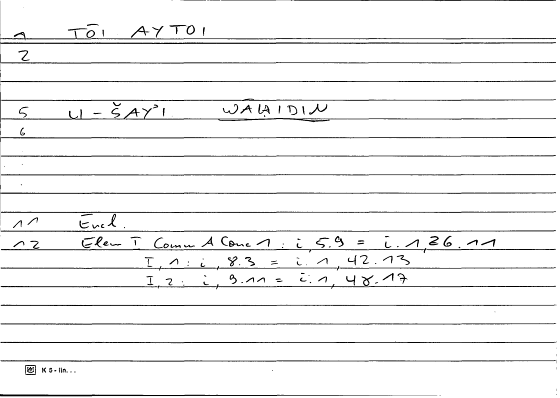 1 TŌI AYTOI
2
5 LI-ŠAYʾI WĀḤIDIN
6
11 Eucl.
12 Elem I Comm A Conc 1 : i, 5.9 = i.1, 26.11
I, 1 : i, 8.3 = i.1, 42.13
I, 2 : i, 9.11 = i.1, 48.17
K 5 - lin...